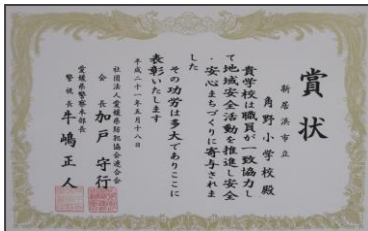 賞状
新居浜市立
角野小学校殿
貴学校は職員が一致協力し
て地域安全活動を推進し安全
・安心まちづくりに寄与されま
した
その功労は多大でありここに
表彰いたします
平成二十一年五月十八日
社団法人愛媛県防犯協会連合会
会長加戸守行
愛媛県警察本部長
警視長牛嶋正人